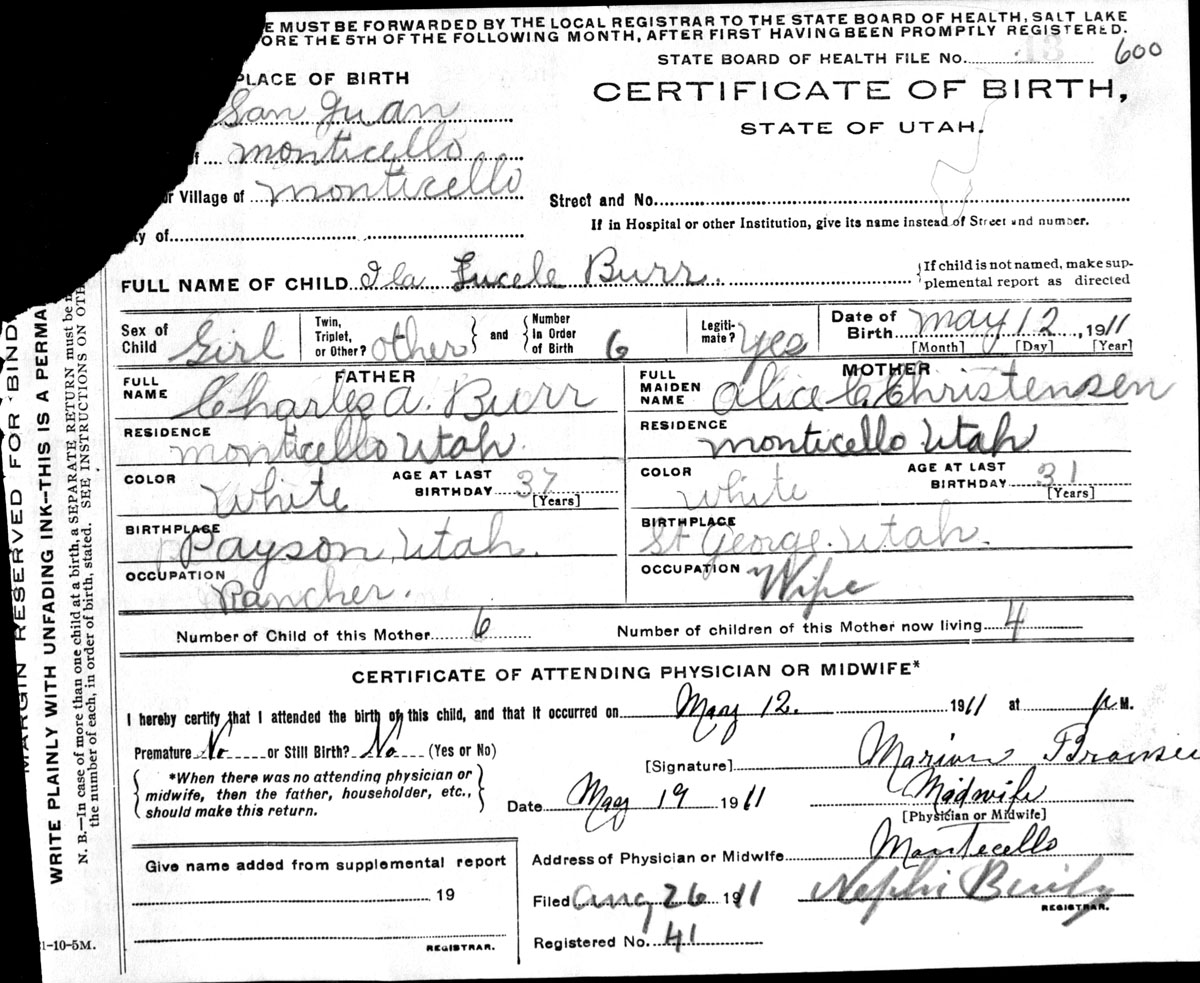 E MUST BE FORWARDED BY THE LOCAL REGISTRAR TO THE STATE BOARD OF HEALTH, SALT LAKE
ORE THE 5TH OF THE FOLLOWING MONTH, AFTER FIRST HAVING BEEN PROMPTLY REGISTERED.
STATE BOARD OF HEALTH FILE No. 13 600
PLACE OF BIRTH
CERTIFICATE OF BIRTH,
STATE OF UTAH.
San Juan
of Monticello
or Village of Monticello
Street and No.
If in Hospital or other Institution, give its name instead of Street and number.
ty of
FULL NAME OF CHILD Ila Lucele Burr.
If child is not named, make sup-
plemental report as directed
Sex of Child Girl
Twin, Triplet, or Other? other
and Number In Order of Birth 6
Legiti-mate? yes
Date of Birth May 12, 1911
[Month] [Day] [Year]
FATHER
FULL NAME Charles A. Burr
RESIDENCE Monticello Utah.
COLOR White
AGE AT LAST BIRTHDAY 37 [Years]
BIRTHPLACE Payson, Utah.
OCCUPATION Rancher.
MOTHER
FULL MAIDEN NAME Alice C. Christensen
RESIDENCE Monticello Utah
COLOR White
AGE AT LAST BIRTHDAY 31 [Years]
BIRTHPLACE St George. Utah.
OCCUPATION Wife
Number of Child of this Mother 6
Number of children of this Mother now living 4
CERTIFICATE OF ATTENDING PHYSICIAN OR MIDWIFE*
I hereby certify that I attended the birth of this child, and that it occurred on May 12. 1911 at P M.
Premature No or Still Birth? No (Yes or No)
[Signature] Marion
*When there was no attending physician or
midwife, then the father, householder, etc.,
should make this return.
Date May 19 1911
Midwife
[Physician or Midwife]
Address of Physician or Midwife Monticello
Give name added from supplemental report
19
REGISTRAR.
Filed Aug 26 1911
Nephi
REGISTRAR.
Registered No. 41
1-10-5M.
MARGIN RESERVED FOR BIND
WRITE PLAINLY WITH UNFADING INK—THIS IS A PERMA
N. B.—In case of more than one child at a birth, a SEPARATE RETURN must be
the number of each, in order of birth, stated. SEE INSTRUCTIONS ON OTH